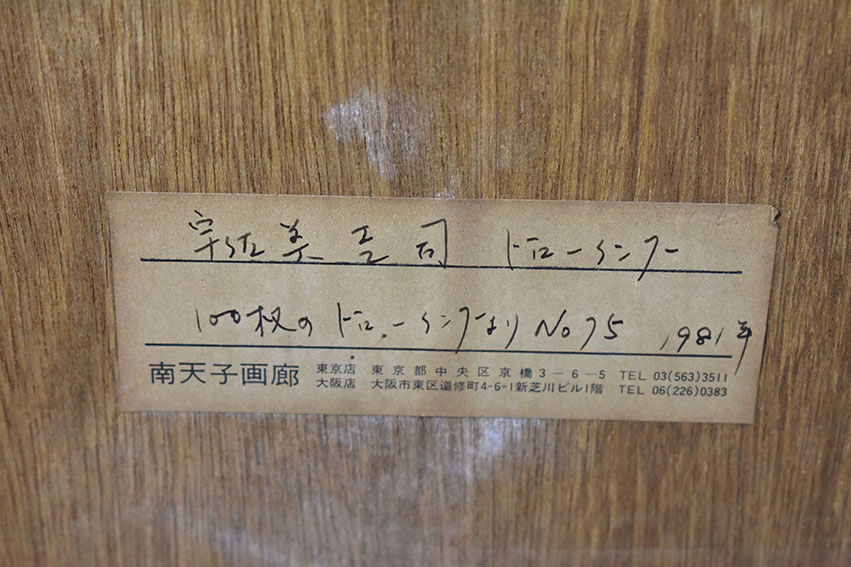 宇佐美圭司 ドローイング
100枚のドローイングより No 75 1981年
南天子画廊 東京店 東京都中央区京橋3-6-5 TEL 03(563)3511
大阪店 大阪市東区道修町4-6-1新芝川ビル1階 TEL 06(226)0383